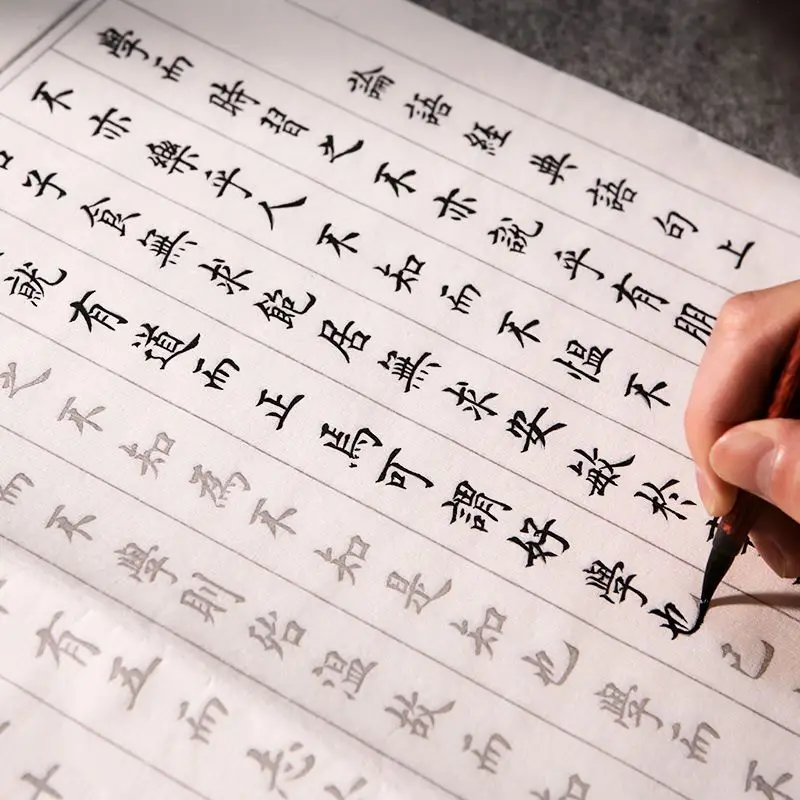 論語經典語句上
學而時習之不亦說乎有朋
不亦樂乎人不知而不慍不
子食無求飽居無求安敏於
就有道而正焉可謂好學也已
之不知為不知是知也學而不
而不學則殆溫故而知
有五而志
十